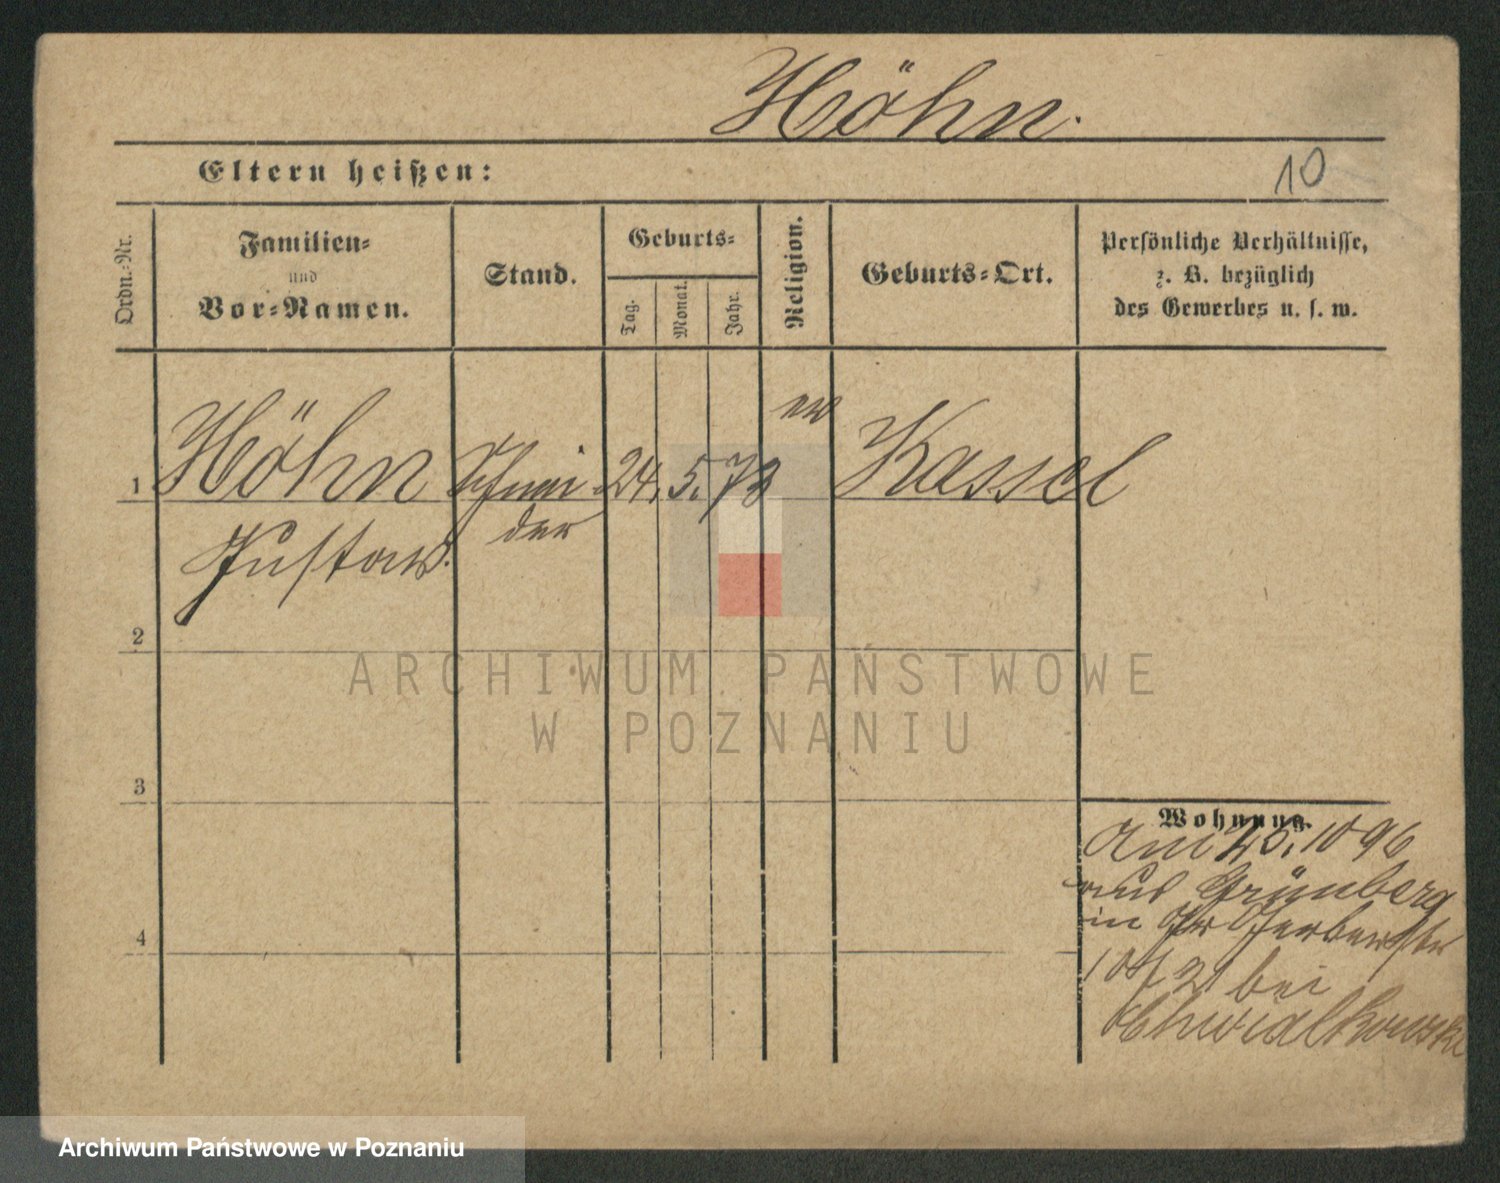 Höhn.
10
Eltern heißen:
Ordn.-Nr.
Familien-
und
Vor-Namen.
Stand.
Geburts-
Tag.
Monat.
Jahr.
Religion.
Geburts-Ort.
Persönliche Verhältnisse,
z. B. bezüglich
des Gewerbes u. s. w.
1 Höhn Schnei 24. 5. 73 ev Kassel
Gustav. der
2
3
4
Wohnung.
Am 25. 10 96
aus Grünberg
in Gerberstr
10/ 21 bei
Chwialkowski
ARCHIWUM PAŃSTWOWE
W POZNANIU
Archiwum Państwowe w Poznaniu